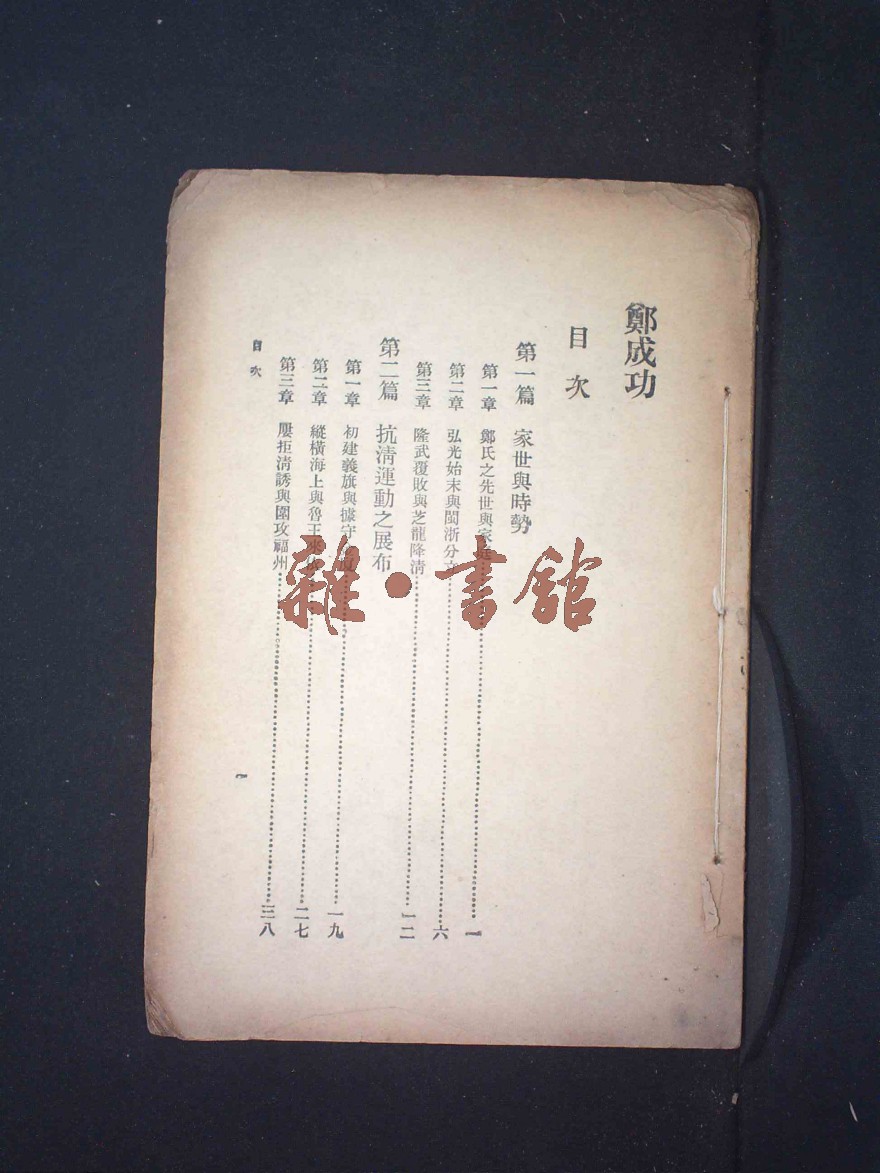 鄭成功
目次
第一篇 家世與時勢
第一章 鄭氏之先世與家庭……一
第二章 弘光始末與閩浙分立……六
第三章 隆武覆敗與芝龍降清……一二
第二篇 抗清運動之展布
第一章 初建義旗與據守……一九
第二章 縱橫海上與魯王來……二七
第三章 屢拒清誘與圍攻福州……三八
目次
一
雜·書館